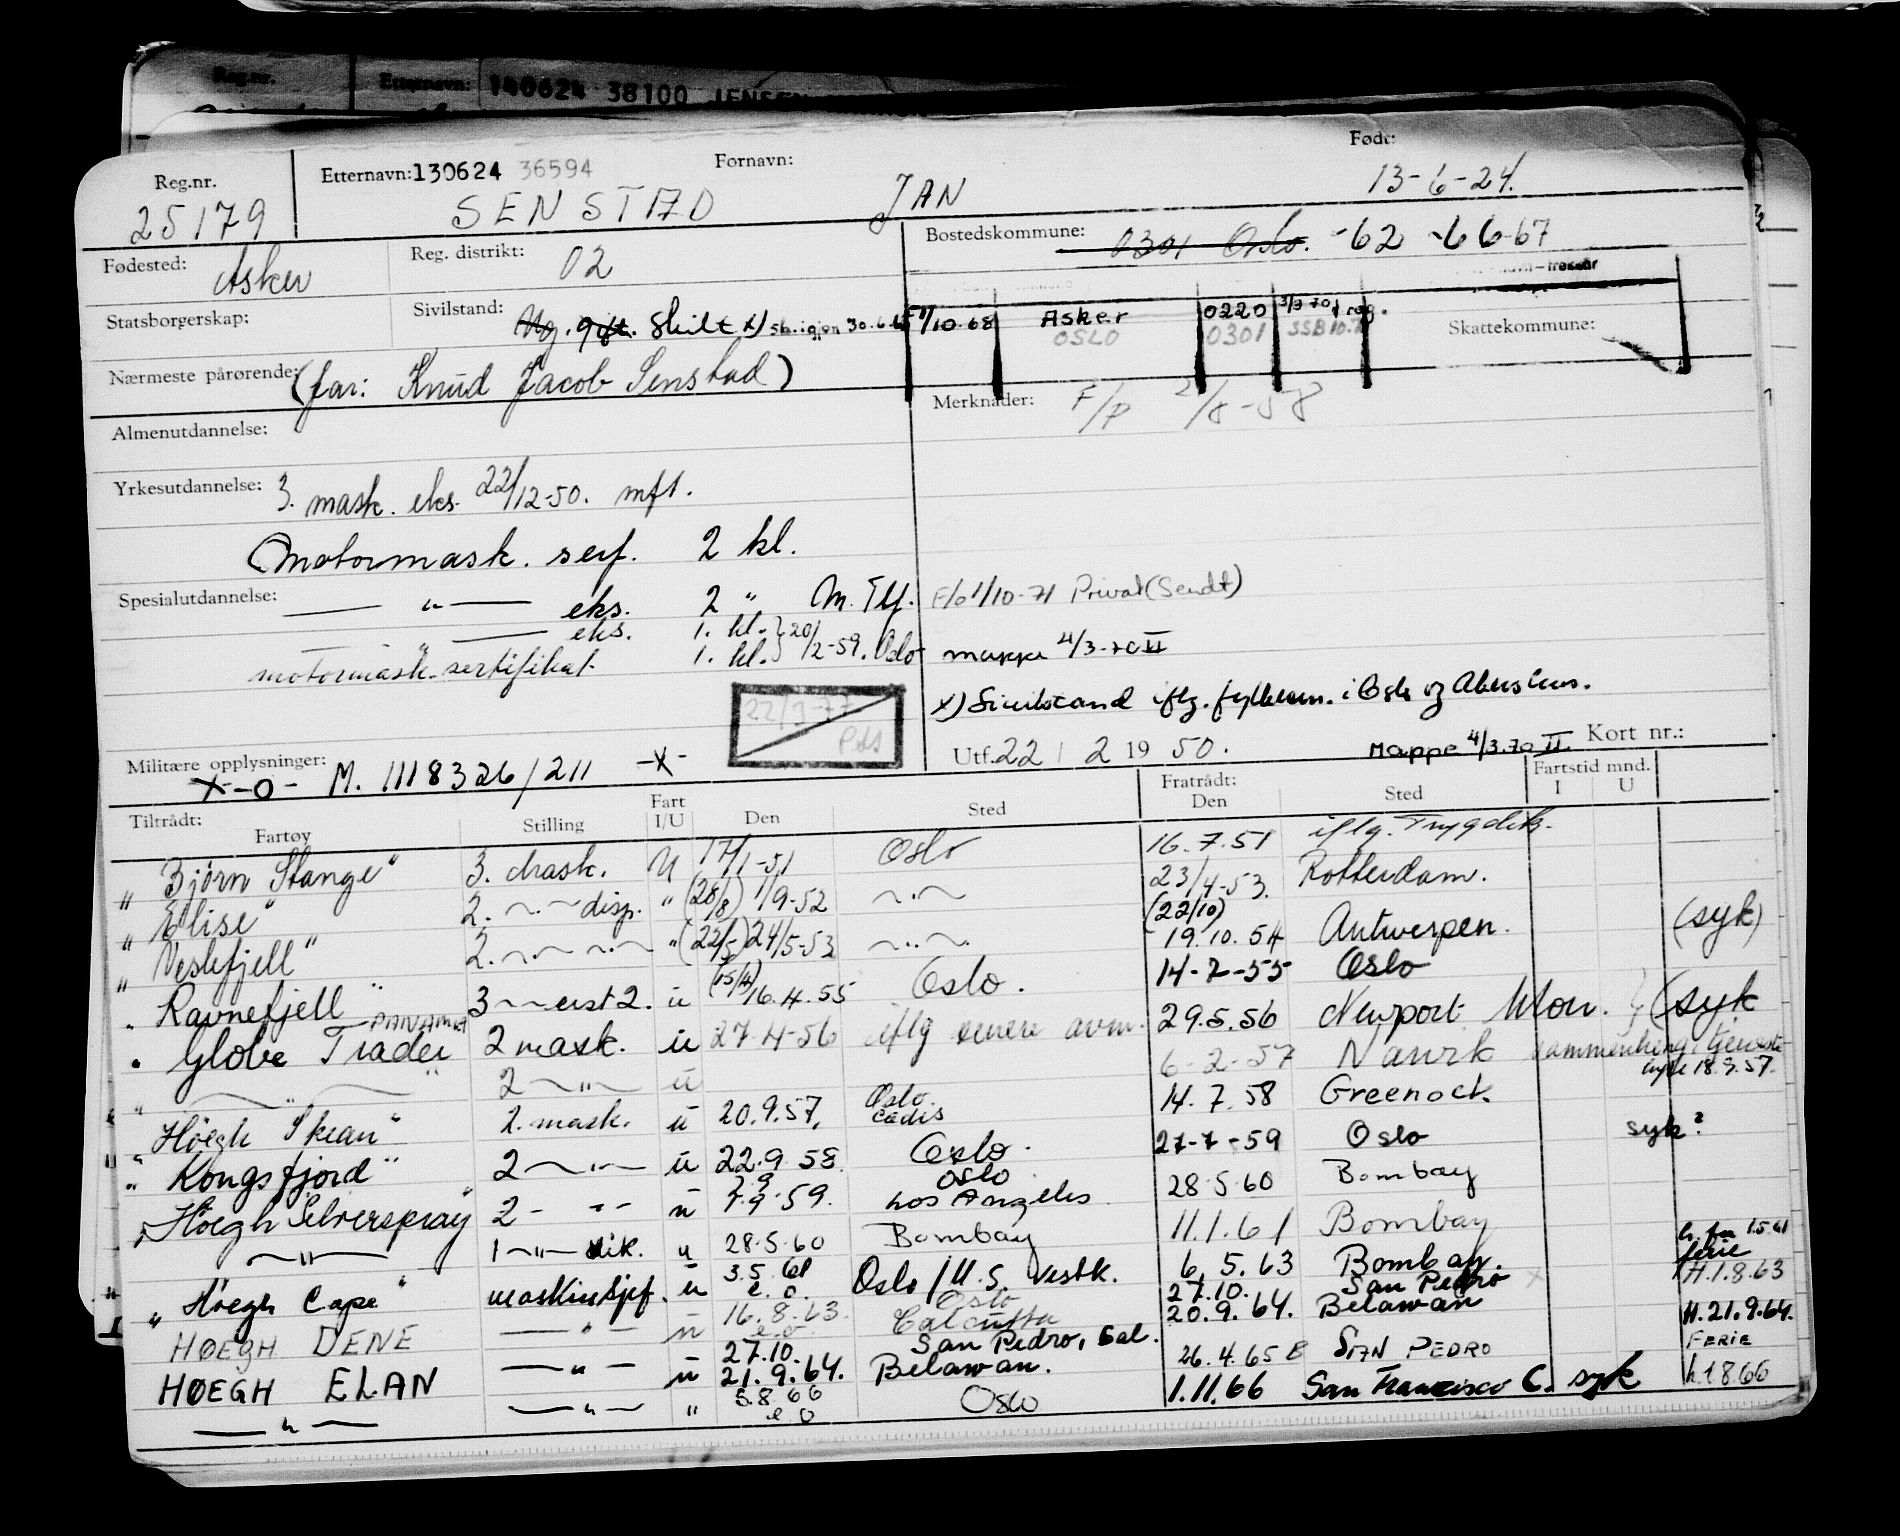 Reg.nr. Etternavn: 140624 38100 JENSEN
Reg.nr. Etternavn: 130624 36594 Fornavn: Født:
25179 SENSTAD JAN 13-6-24.
Fødested: Asker Reg. distrikt: 02 Bostedskommune: 0301 Oslo. -62 -66-67
Statsborgerskap: Sivilstand: Ug. gift. Skilt x) 30.6.
1/10.68 Asker 0220 3/3 70 reg.
OSLO 0301 SSB 10.7
Skattekommune:
Nærmeste pårørende: (far: Knud Jacob Senstad)
Merknader: F/p 2/8-58
Almenutdannelse:
Yrkesutdannelse: 3. mask. eks. 22/12-50. mft.
Motormask. serf. 2 kl.
Spesialutdannelse: — " — eks. 2 " M. Tlf.
F/o 1/10-71 Privat (Sendt)
— " — eks. 1. kl. } 20/2-59. Oslo
motormask. sertifikat. 1. kl.
mappe 4/3-70 II
x) Sivilstand iflg. fylkesm. i Oslo og Akershus.
22/9-77
Utf. 22 / 2 19 50. Mappe 4/3.70 II Kort nr.:
Militære opplysninger: x-o- M. 1118326/211 -x-
Tiltrådt: Fratrådt: Fartstid mnd.
Fartøy Stilling Fart I/U Den Sted Den Sted I U
"Bjørn Stange" 3. mask. U 17/1-51 Oslo 16.7.51 iflg. Trygdek.
"Elise" 2. -"- disp. " (28/8) 1/9-52 -"- 23/4-53. Rotterdam.
"Veslefjell" 2. -"- -"- " (22/5) 24/5-53 -"- (22/10) 19.10.54 Antwerpen. (syk)
"Ravnefjell" 3 -"- erst 2. u (15/4) 16.4.55 Oslo. 14-7-55 Oslo
"Globe Trader" PANAMA 2 mask. u 27-4-56 iflg senere avm. 29.5.56 Newport Mon. } (syk
" -"- " 2 -"- u 6-2-57 Narvik sammenheng i tjeneste
18.9.57.
"Höegh Skean" 2. mask. u 20.9.57. Oslo. Cadis 14.7.58 Greenock.
"Kongsfjord" 2 -"- u 22.9.58. Oslo. 27-7-59 Oslo syk?
"Höegh Silverspray" 2 - " - u 7.9.59. OSLO Los Angeles 28.5.60 Bombay
-"- 1 -"- vik. u 28.5.60 Bombay 11.1.61 Bombay
"Höegh Cape" maskinsjef. u 3.5.61 e.o. Oslo/U.S. vestk. 6.5.63 Bombay. h. fra 1.5.61 ferie
HØEGH DENE — " — u 16.8.63. e.o 27.10. Oslo Calcutta San Pedro, Cal. 27.10. San Pedro H.1.8.63
HØEGH ELAN — " — u 21.9.64. Belawan. 20.9.64. Belawan H.21.9.64.
26.4.65 SAN PEDRO FERIE
— " — — " — " 5.8.66 e o Oslo 1.11.66 San Francisco C. syk h.1.8.66